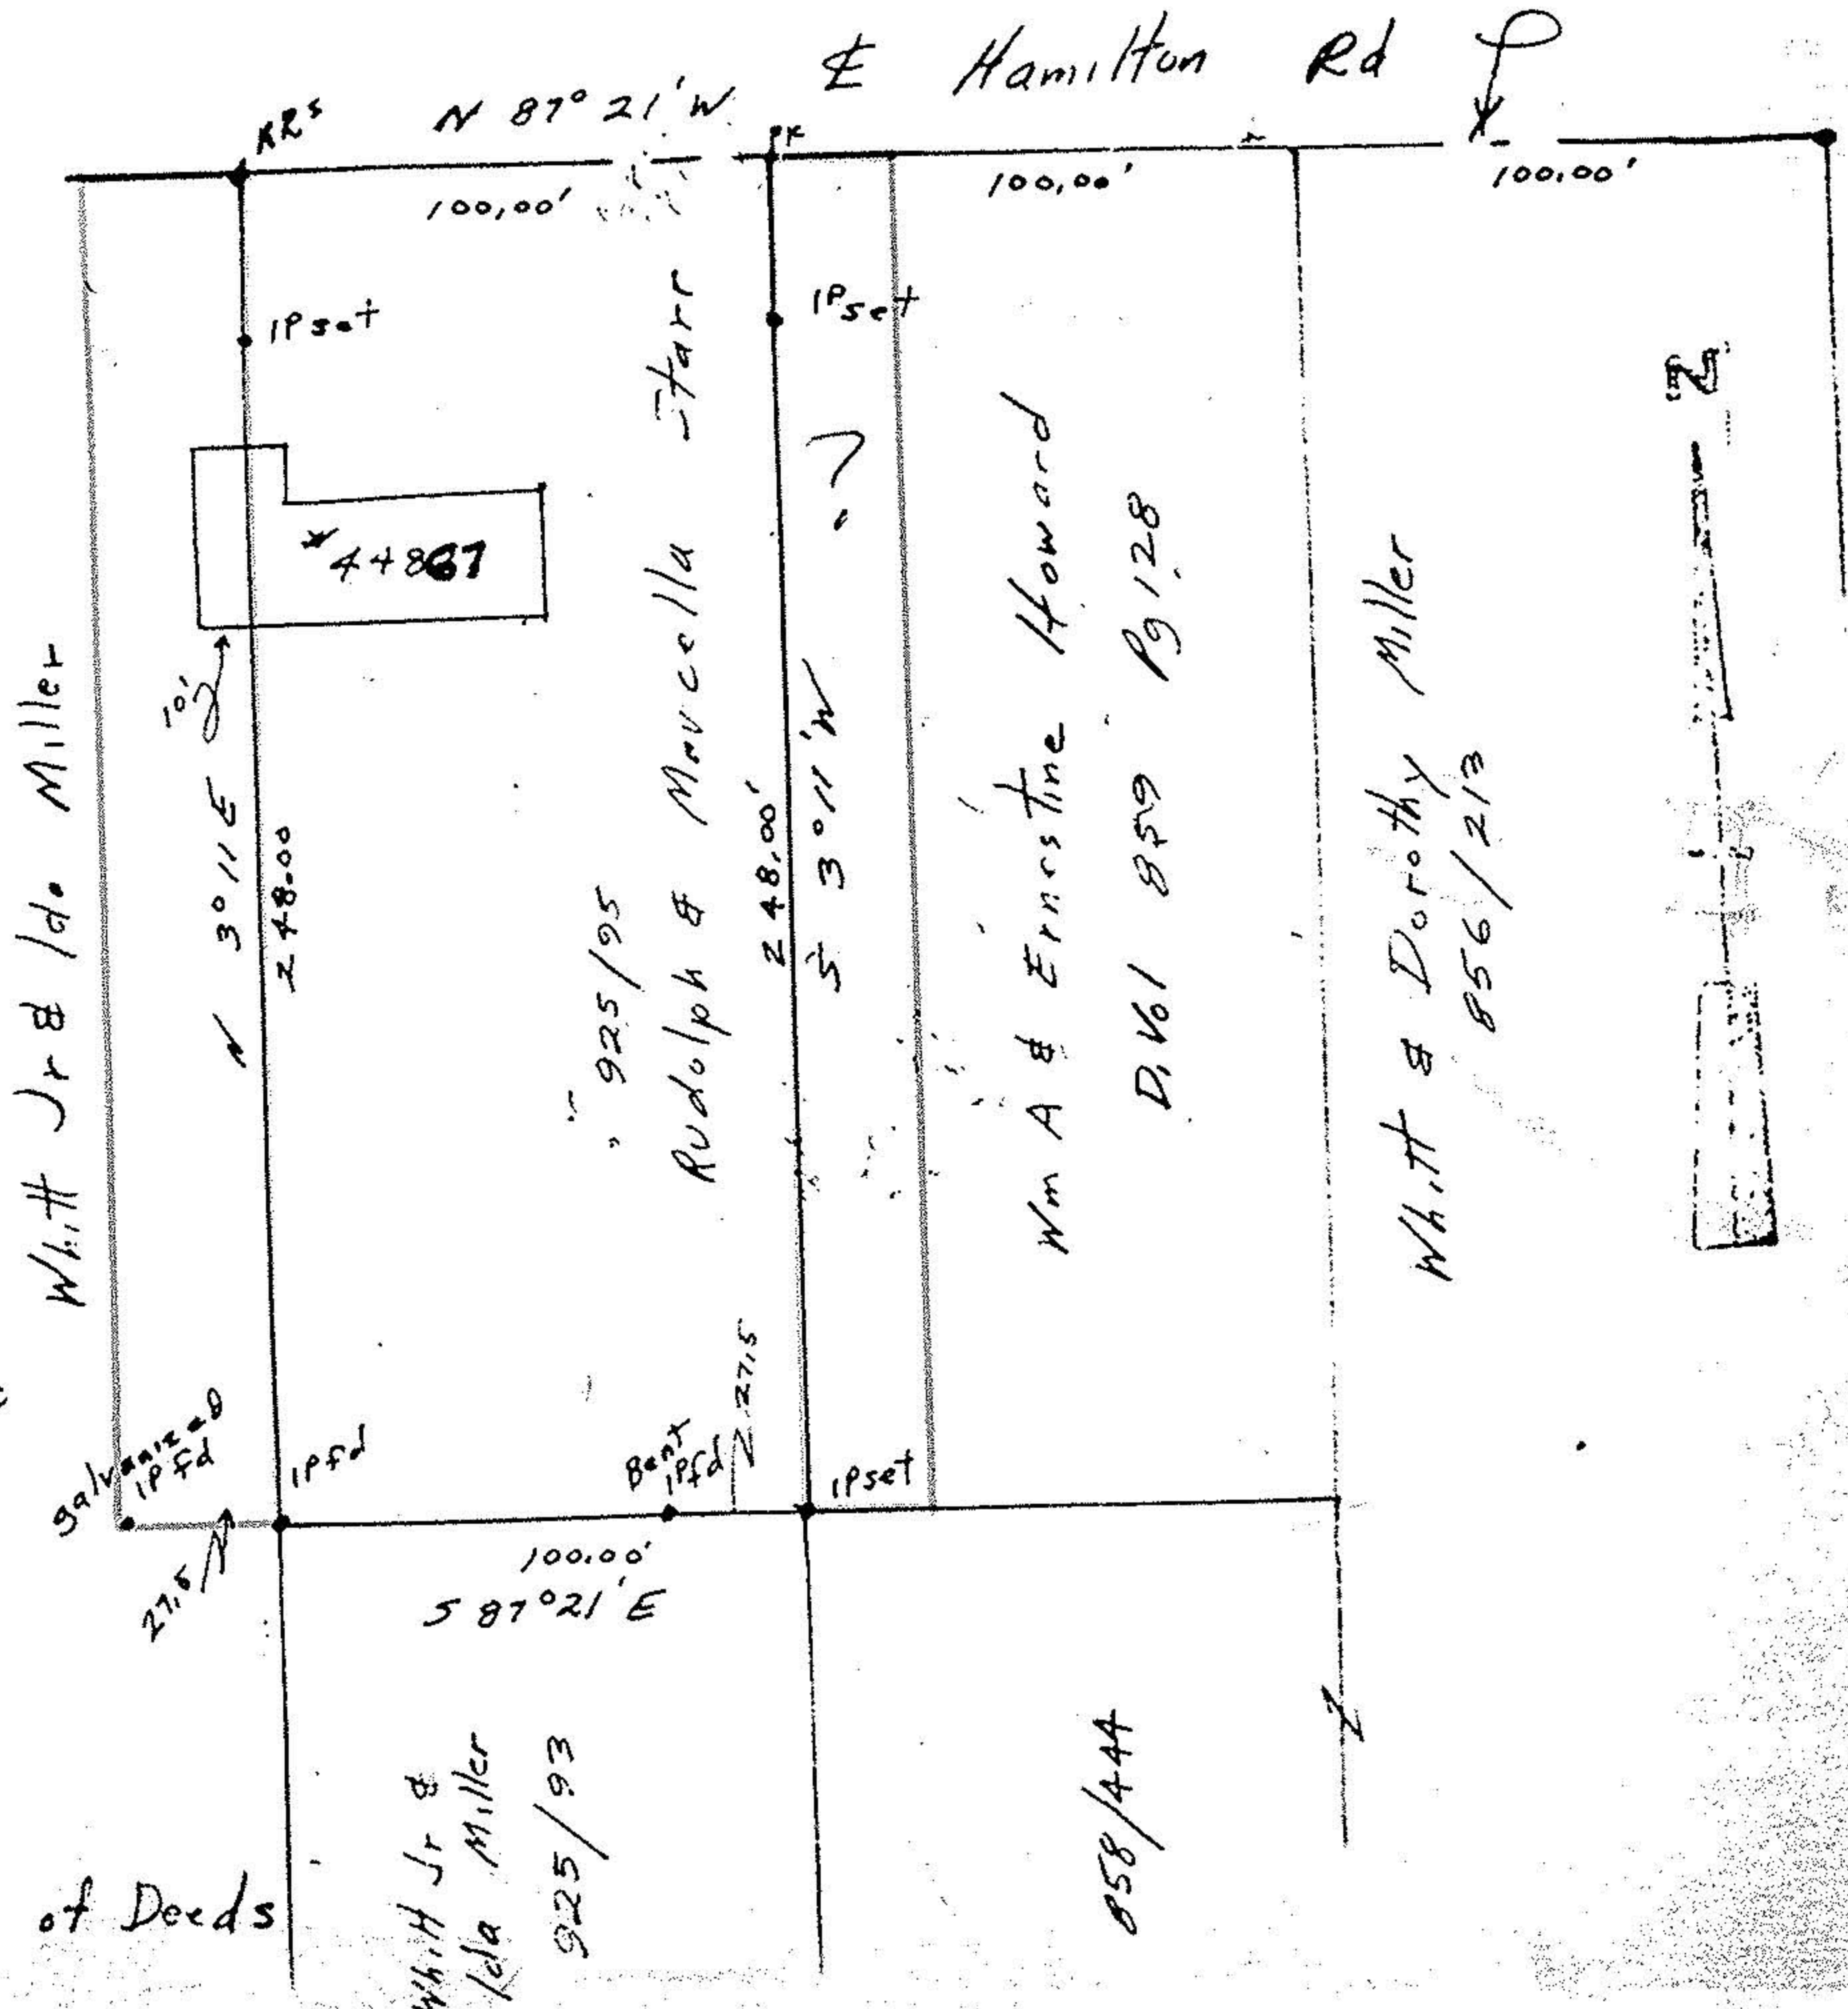 ℄ Hamilton Rd
N 87° 21' W
RRs
PK
100.00'
100.00'
100.00'
IP set
IP set
*44867
10'
Whitt Jr & Ida Miller
N 3° 11 E
248.00
925/95
Rudolph & Marcella Starr
248.00'
S 3° 11' W
?
Wm A & Ernestine Howard
D. Vol 859 Pg 128
Whitt & Dorothy Miller
856/213
galvanized
IPfd
27.5
IPfd
Bent
IPfd
27.5
IPset
100.00'
S 87° 21' E
Whitt Jr &
Ida Miller
925/93
858/444
of Deeds